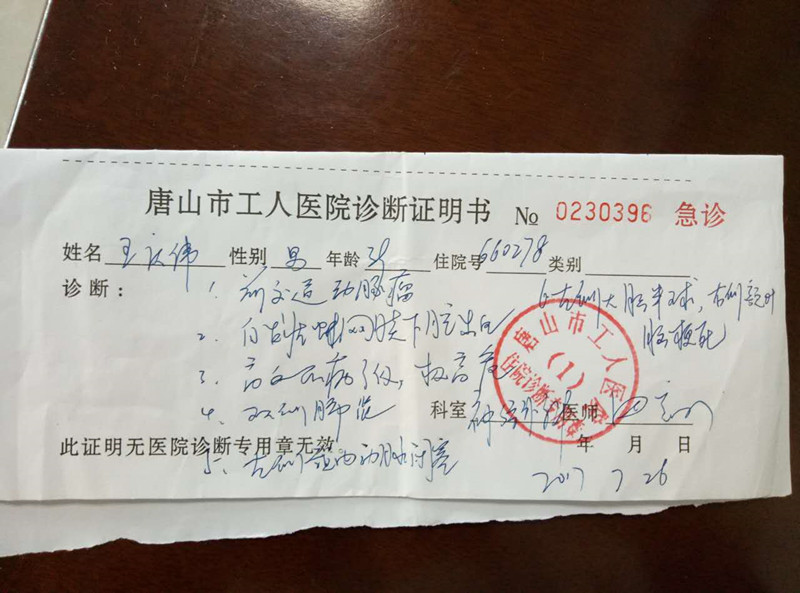 唐山市工人医院诊断证明书 № 0230396 急诊
姓名 王庆伟 性别 男 年龄 住院号 660278 类别
诊断：1. 前交通动脉瘤
2. 自发性蛛网膜下腔出血
3. 高血压病3级，极高危
4. 双侧肺炎
5. 左侧颈内动脉闭塞
6 左侧大脑半球，右侧额叶
脑梗死
科室 神经外 医师
此证明无医院诊断专用章无效
年 月 日
2017 7 26
唐山市工人医院
(1)
住院诊断专用章